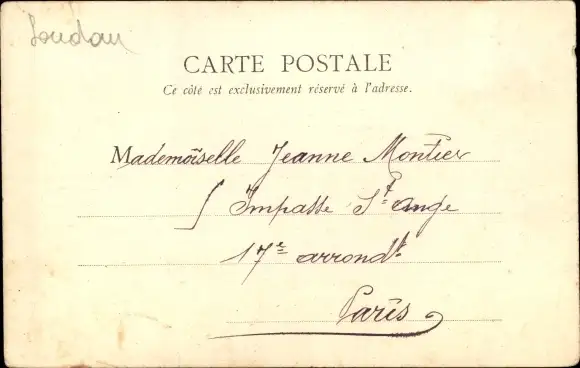 Soudan
CARTE POSTALE
Ce côté est exclusivement réservé à l'adresse.
Mademoiselle Jeanne Montier
Impasse St Ange
17e arrondt
Paris